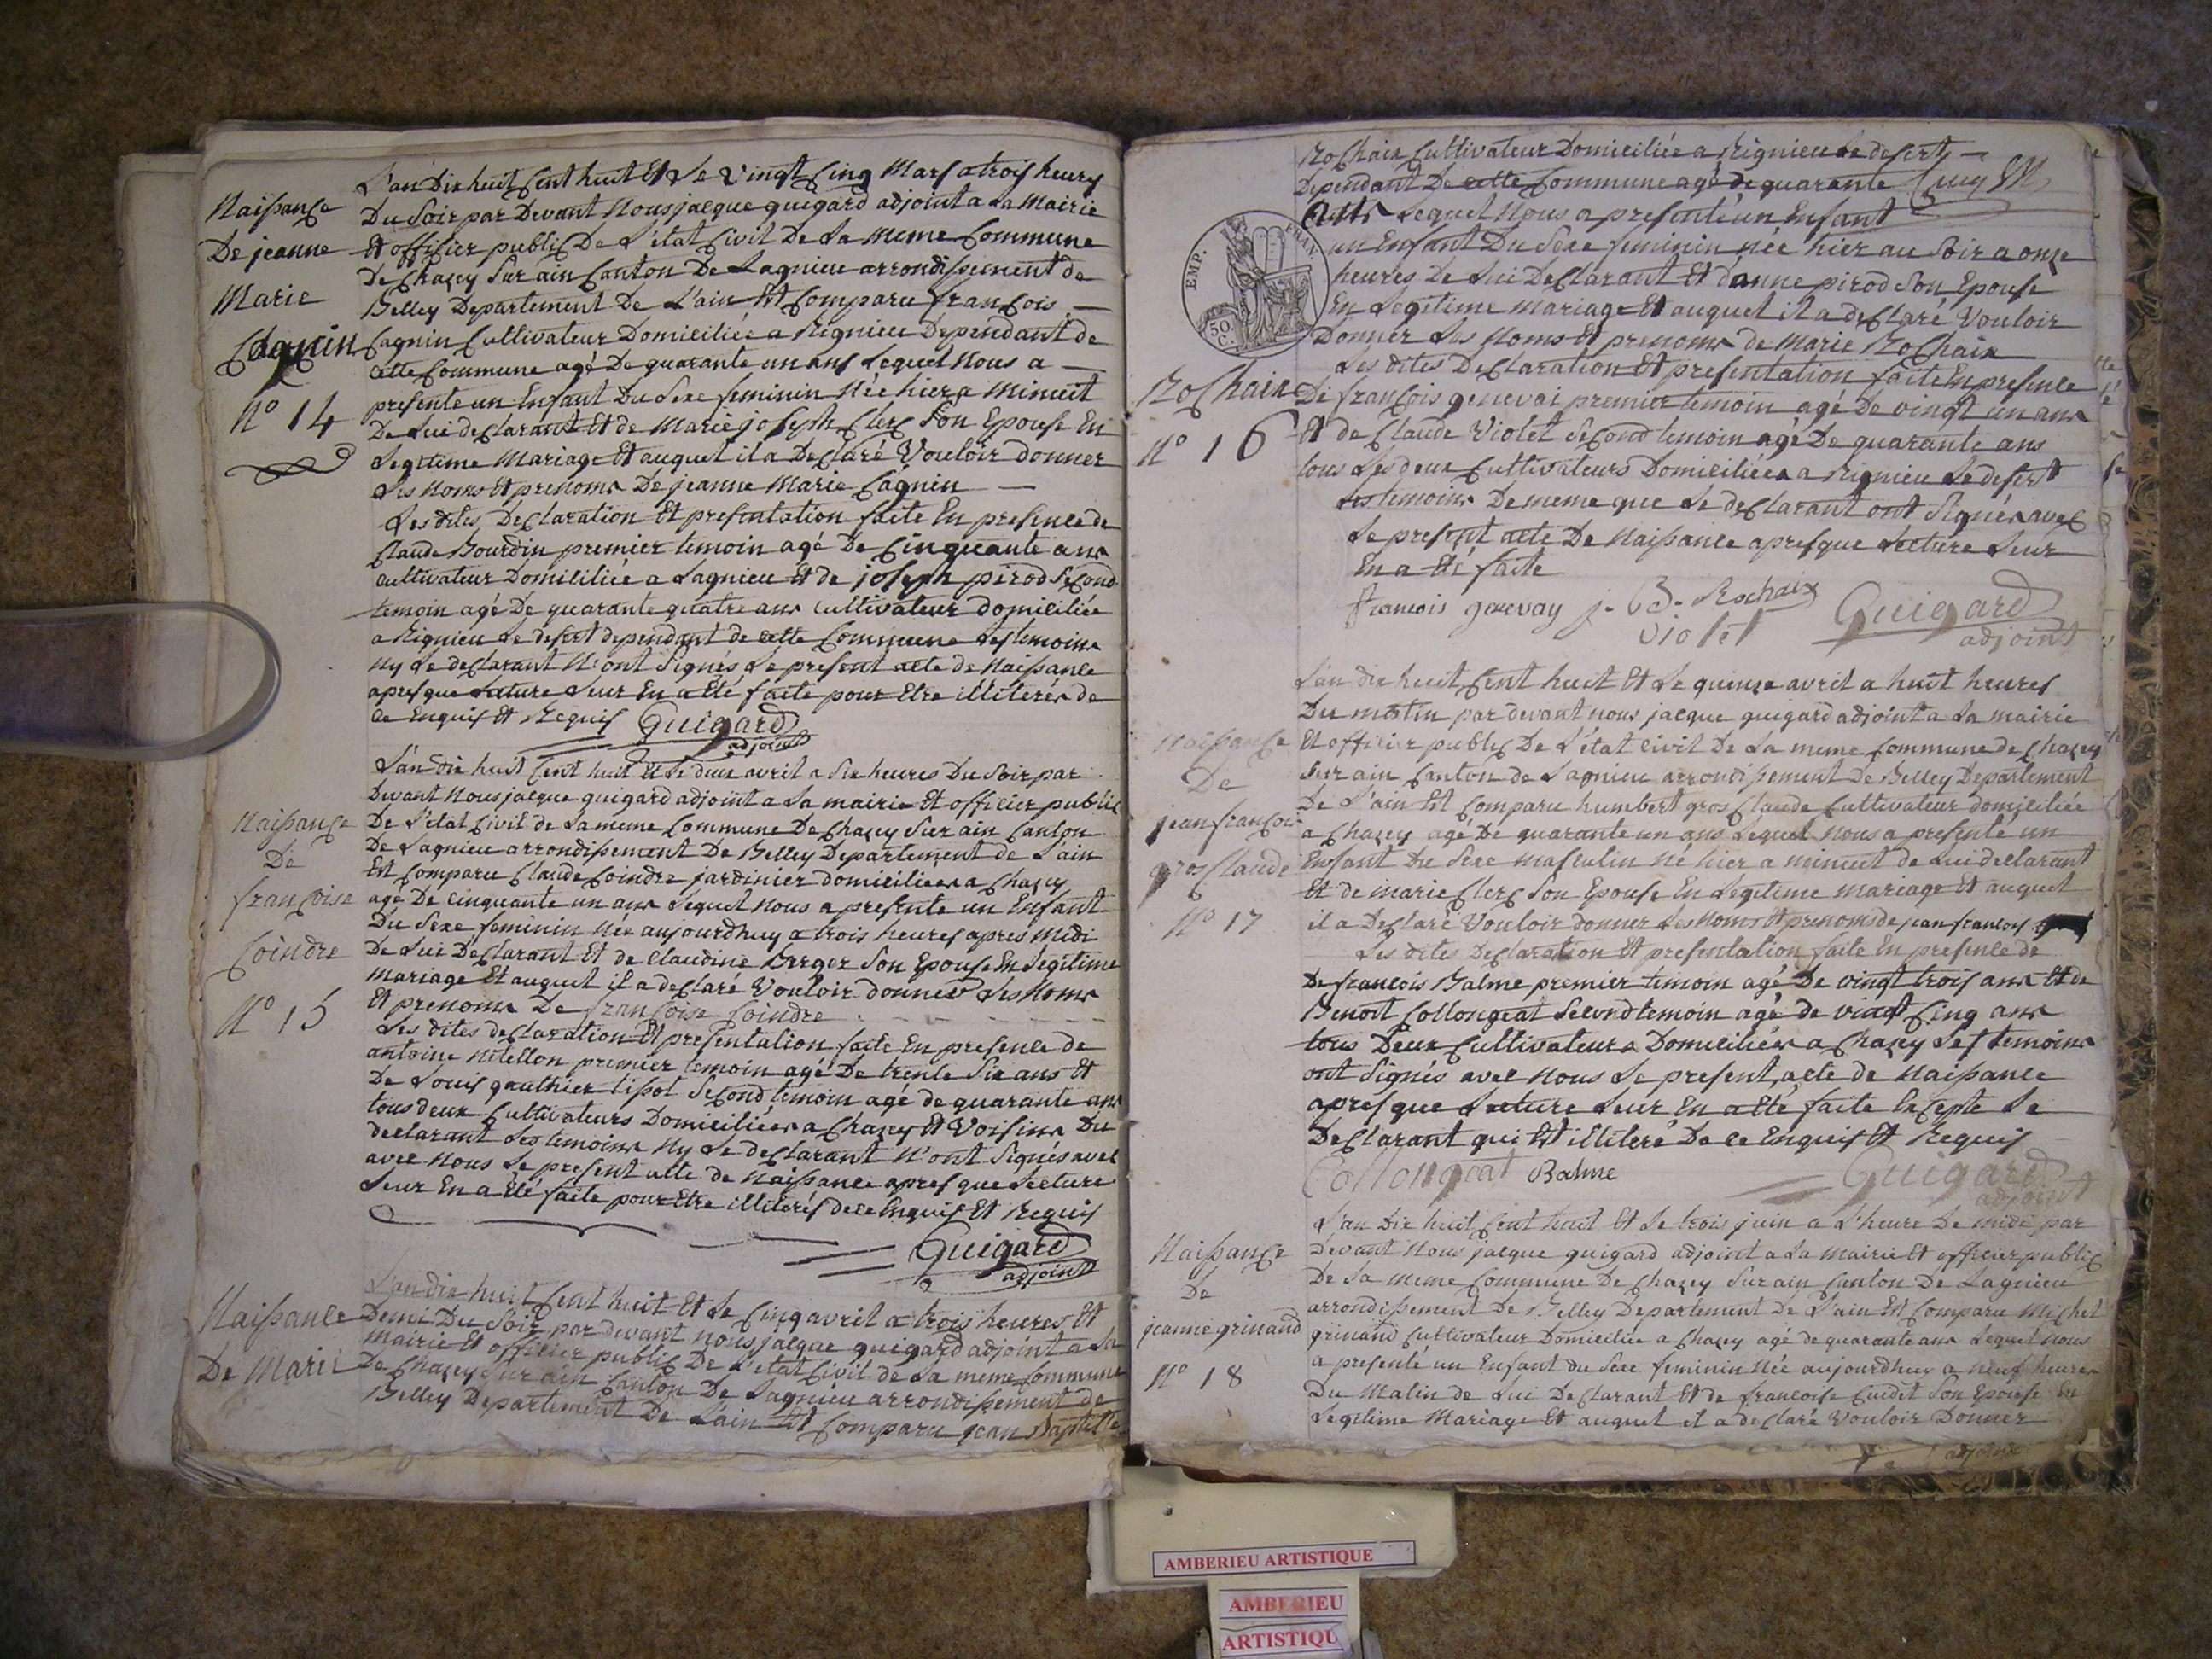 L'an Dix huit Cent huit Et Le Vingt Cinq Mars a trois heures
Naissance
Du Soir par Devant Nous jacque guigard adjoint a La Mairie
De jeanne
Et officier public De L'état Civil De La meme Commune
De Chazey Sur ain Canton De Lagnieu arrondissement de
Marie
Belley Departement De L'ain Est Comparu francois
Cagnin
Cagnin Cultivateur Domiciliée a Rignieu Dependant de
cette Commune agé De quarante un ans Lequel Nous a
N° 14
presente un Enfant Du Sexe feminin Née hier a Minuit
De Lui declarant Et de Marie joseph Clerc Son Epouse En
Legitime Mariage Et auquel il a Declaré Vouloir donner
Les Noms Et prenoms De jeanne Marie Cagnin
Les dites Declaration Et presentation faite En presence de
Claude Bourdin premier temoin agé De Cinquante ans
cultivateur Domiciliée a Lagnieu Et de joseph pirod Second
temoin agé De quarante quatre ans cultivateur domiciliée
a Rignieu Le desert dependant de cette Commune Les temoins
Ny Le declarant N'ont Signés Le present acte de Naissance
apres que Lecture Leur En a Eté faite pour Etre illiterés de
ce Enquis Et Requis Guigard
adjoint
L'an dix huit Cent huit Et Le deux avril a Six heures Du Soir par
Devant Nous jacque guigard adjoint a La mairie Et officier public
Naissance
De L'état Civil de La meme Commune De Chazey Sur ain Canton
De
De Lagnieu arrondissement De Belley Departement de L'ain
Est Comparu Claude Coindre jardinier domiciliées a Chazey
francoise
agé De cinquante un ans Lequel Nous a presente un Enfant
Du Sexe feminin Née aujourdhuy a trois heures apres Midi
Coindre
De Lui Declarant Et de Claudine Berger Son Epouse En Legitime
mariage Et auquel il a declaré Vouloir donner Les Noms
N° 15
Et prenoms De francoise Coindre
Les dites declaration Et presentation faite En presence de
antoine premier temoin agé De trente Six ans Et
De Louis gauthier tissot Second temoin agé de quarante ans
tous deux Cultivateurs Domiciliées a Chazey Et Voisins Du
declarant Les temoins Ny Le declarant N'ont Signés avec
avec Nous Le present acte de Naissance apres que Lecture
Leur En a Eté faite pour Etre illiterés de ce Enquis Et Requis
Guigard
adjoint
L'an dix huit Cent huit Et Le Cinq avril a trois heures Et
Naissance
Demi Du Soir par devant nous jacque guigard adjoint a La
mairie Et officier public De L'état Civil de La meme Commune
De Marie
De Chazey Sur ain Canton De Lagnieu arrondissement de
Belley Departement De L'ain Est Comparu jean Baptiste
Rochaix Cultivateur Domiciliée a Rignieu Le desert
Dependant De cette Commune agé de quarante Cinq
ans Lequel Nous a presenté un Enfant
un Enfant Du Sexe feminin née hier au Soir a onze
heures De Lui Declarant Et d'anne pirod Son Epouse
En Legitime mariage Et auquel il a declaré Vouloir
Donner Les Noms Et prenoms de Marie Rochaix
EMP. FRAN.
50 C.
Les dites Declaration Et presentation faite En presence
Rochaix
De francois genevai premier temoin agé De vingt un ans
N° 16
Et de Claude Violet Second temoin agé De quarante ans
tous Les deux Cultivateurs Domiciliées a Rignieu Le desert
Les temoins De meme que Le declarant ont Signés avec
Le present acte De Naissance apres que Lecture Leur
En a Eté faite
francois genevay j. B. Rochaix Guigard
Violet adjoint
L'an dix huit Cent huit Et Le quinze avril a huit heures
Du matin par devant nous jacque guigard adjoint a La mairie
Naissance
Et officier public De L'état civil De La meme Commune de Chazey
De
Sur ain Canton de Lagnieu arrondissement De Belley Departement
De L'ain Est Comparu humbert gros Claude Cultivateur domiciliée
jean francois
a Chazey agé De quarante un ans Lequel Nous a presenté un
gros Claude
Enfant Du Sexe masculin Né hier a minuit de Lui declarant
Et de marie Clerc Son Epouse En Legitime mariage Et auquel
N° 17
il a Declaré Vouloir donner Les Noms Et prenoms de jean francois
Les dites Declaration Et presentation faite En presence de
De francois Balme premier temoin agé De vingt trois ans Et de
Benoit Collongeat Second temoin agé de vingt Cinq ans
tous Deux Cultivateurs Domiciliées a Chazey Les temoins
ont Signés avec Nous Le present acte de Naissance
apres que Lecture Leur En a Eté faite Excepte Le
Declarant qui Est illiteré De ce Enquis Et Requis
Collongeat Balme Guigard
adjoint
L'an Dix huit Cent huit Et Le trois juin a L'heure De midi par
Naissance
Devant Nous jacque guigard adjoint a La mairie Et officier public
De
De La meme Commune De Chazey Sur ain Canton De Lagnieu
arrondissement De Belley Departement De L'ain Est Comparu Michel
jeanne grinand
grinand Cultivateur Domiciliée a Chazey agé de quarante ans Lequel Nous
N° 18
a presenté un Enfant du Sexe feminin Née aujourdhuy a neuf heures
Du Matin de Lui Declarant Et de francoise Cuidet Son Epouse En
Legitime Mariage Et auquel il a declaré Vouloir Donner
adjoint
AMBERIEU ARTISTIQUE
AMBERIEU
ARTISTIQU